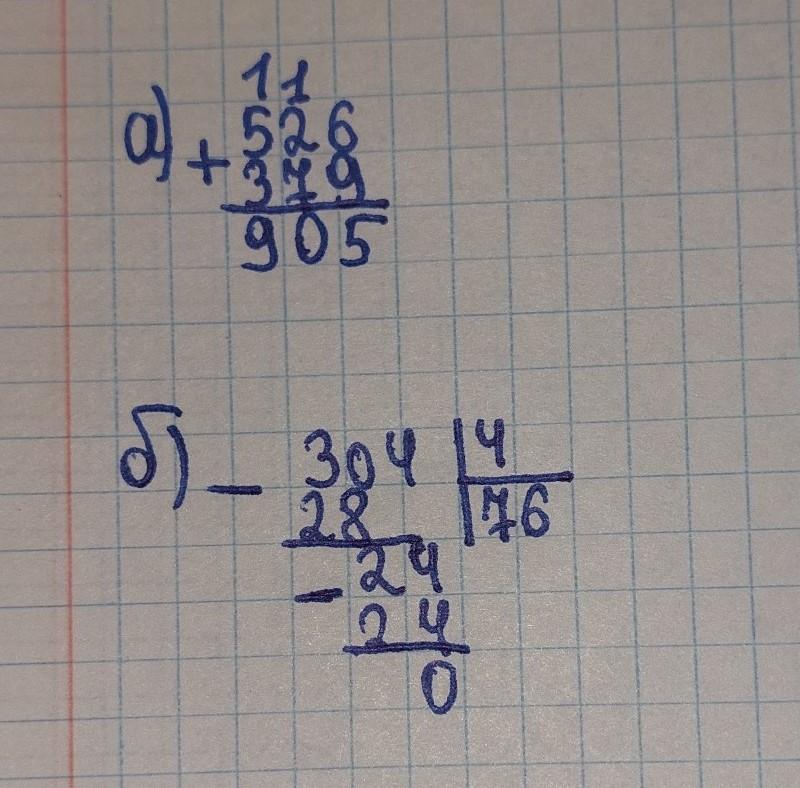 11
а) 526
+ 379
905
б) – 304 | 4
28 | 76
– 24
24
0